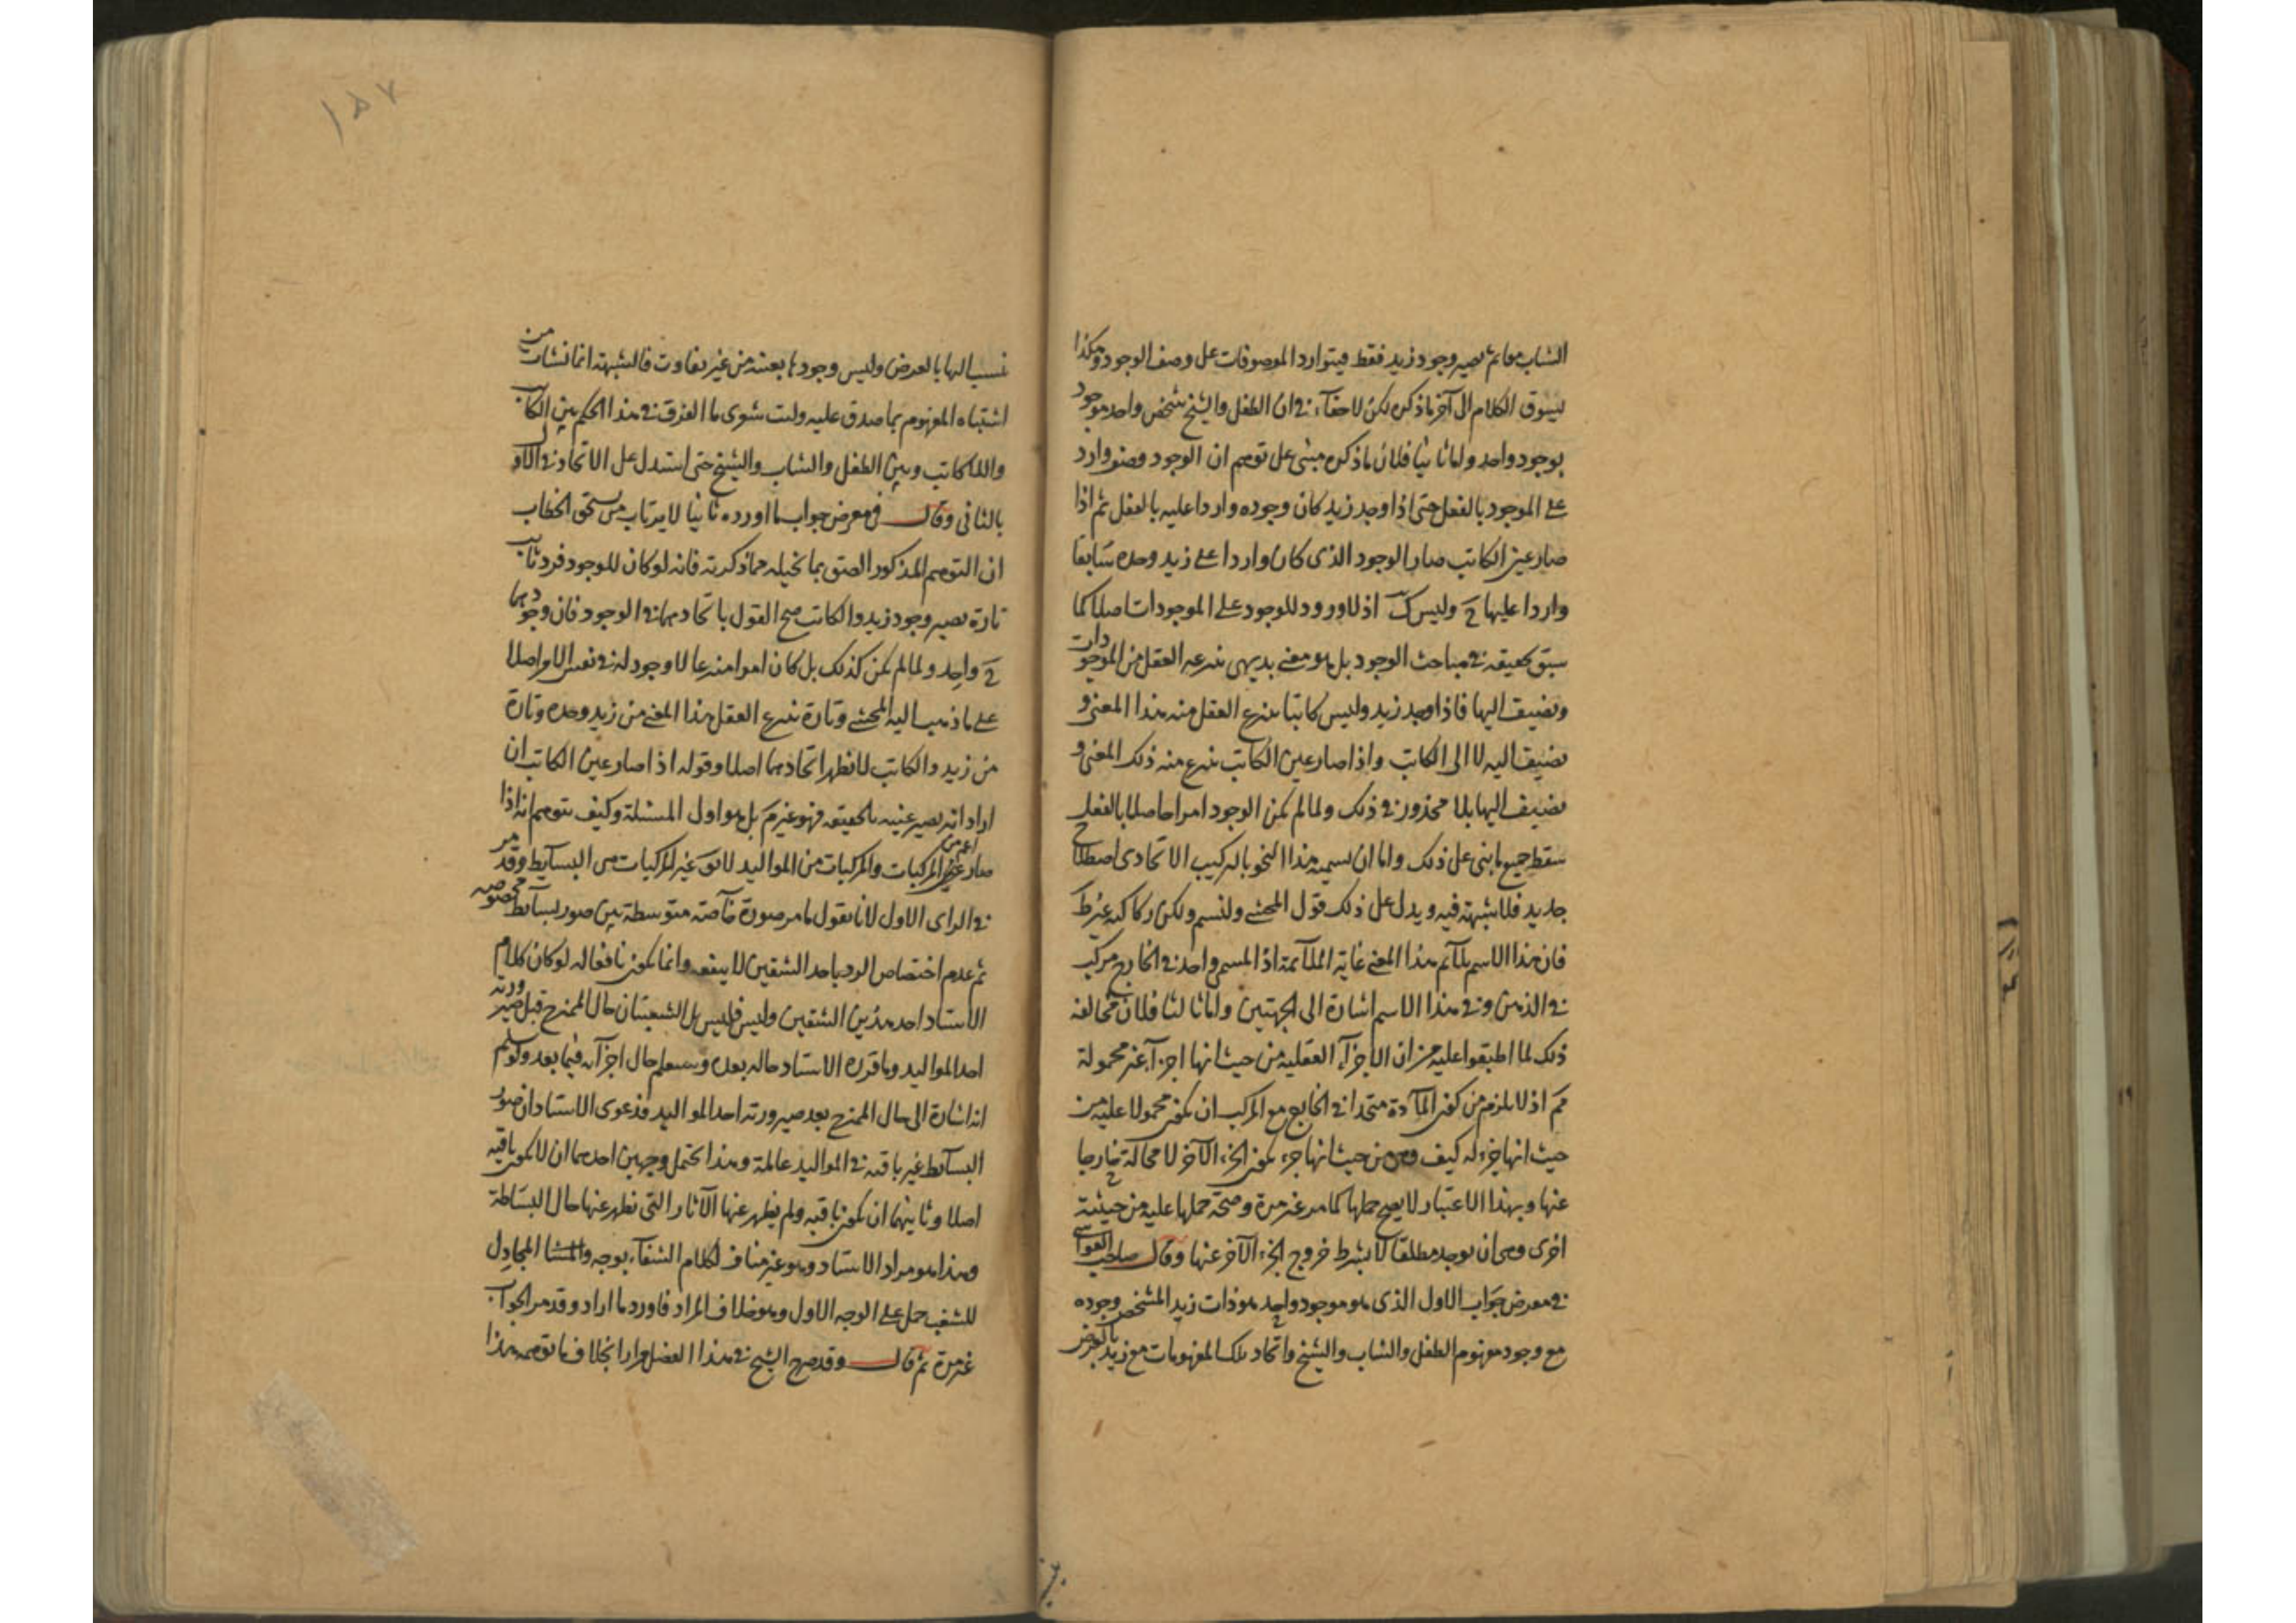 الشاب معا ثم يصير وجود زيد فقط فيتوارد الموصوفات على وصف الوجود وهكذا
يسوق الكلام الى آخر ما ذكره لكن لا خفاء في ان الطفل والشيخ شخص واحد موجود
بوجود واحد واما ثانيا فلان ما ذكره مبنى على توهم ان الوجود وصف وارد
على الموجود بالفعل حتى اذا وجد زيد كان وجوده واردا عليه بالفعل ثم اذا
صار عين الكاتب صار الوجود الذى كان واردا على زيد وحده سابقا
واردا عليهما ح وليس كك اذ لا ورود للوجود على الموجودات اصلا كما
سبق تحقيقه في مباحث الوجود بل هو معنى بديهى ينتزعه العقل من الموجودات
ويضيف اليها فاذا وجد زيد وليس كاتبا ينتزع العقل منه هذا المعنى و
يضيف اليه لا الى الكاتب واذا صار عين الكاتب ينتزع منه ذلك المعنى و
يضيف اليهما بلا محذور في ذلك ولما لم يكن الوجود امرا حاصلا بالفعل
سقط جميع ما بنى على ذلك واما ان تسميه هذا النحو بالتركيب الاتحادى اصطلاح
جديد فلا شبهة فيه ويدل على ذلك قول المحشى ولنسم ولكن ركاكته غير ظ
فان هذا الاسم يلائم هذا المعنى غاية الملائمة اذ المسمى واحد في الخارج مركب
في الذهن وفي هذا الاسم اشارة الى الجهتين واما ثالثا فلان مخالفة
ذلك لما اطبقوا عليه من ان الاجزاء العقلية من حيث انها اجزاء غير محمولة
مم اذ لا يلزم من كون المادة متحدا في الخارج مع المركب ان يكون محمولا عليه من
حيث انها جزء له كيف وهى من حيث انها جزء يكون الجزء الآخر لا محالة خارجا
عنها وبهذا الاعتبار لا يصح حملها كما مر غير مرة وصحة حملها عليه من حيثية
اخرى وهى ان يوجد مطلقا لا بشرط خروج الجزء الآخر عنها وقال صاحب الغواشى
في معرض جواب الاول الذى هو موجود واحد هو ذات زيد المشخص وجوده
مع وجود مفهوم الطفل والشاب والشيخ واتحاد تلك المفهومات مع زيد بالعرض
١٥٧
نسب اليها بالعرض وليس وجودها بعينه من غير تفاوت فالشبهة انما نشأت من
اشتباه المفهوم بما صدق عليه وليت شعرى ما الفرق في هذا الحكم بين الكاتب
واللاكاتب وبين الطفل والشاب والشيخ حتى استدل على الاتحاد في الاول
بالثانى وقال فى معرض جواب ما اورده ثانيا لا يرتاب من يستحق الخطاب
ان التوهم المذكور الصق بما تخيله مما ذكرته فانه لو كان للوجود فرد ثابت
تارة يصير وجود زيد والكاتب صح القول باتحادهما في الوجود فان وجودهما
ح واحد ولما لم يكن كذلك بل كان امرا منتزعا لا وجود له في نفس الامر اصلا
على ما ذهب اليه المحشى وتارة ينتزع العقل هذا المعنى من زيد وحده وتارة
من زيد والكاتب لا يظهر اتحادهما اصلا وقوله اذا صار عين الكاتب ان
اراد انه يصير عينه بالحقيقة فهو غير مم بل هو اول المسئلة وكيف يتوهم انه اذا
صار المركبات والمركبات من المواليد غير المركبات من البسائط وقد مر
في الراى الاول لانا نقول ما مر صورة خاصة متوسطة بين صور بسائط مخصوصه
ثم عدم اختصاص الرد باحد الشقين لا ينفعه وانما يكون نافعا له لو كان كلام
الاستاد احد هذين الشقين وليس فليس بل الشقيتان حال الممتزج قبل صيرورته
احد المواليد وما قرره الاستاد حاله بعده وسيعلم حال اجزائه فيما بعد ولو سلم
انه اشارة الى حال الممتزج بعد صيرورته احد المواليد فدعوى الاستاد ان صور
البسائط غير باقيه في المواليد عالمة وهذا يحتمل وجهين احدهما ان لا يكون باقيه
اصلا وثانيهما ان يكون باقيه ولم يظهر عنها الآثار التى تظهر عنها حال البساطة
وهذا هو مراد الاستاد وهو غير مناف لكلام الشفاء بوجه والمجادل
للشغب حمل على الوجه الاول وهو خلاف المراد فاورد ما اراد وقد مر الجواب
غير مرة ثم قال وقد صرح الشيخ في هذا الفصل مرارا بخلاف ما توهمه هذا